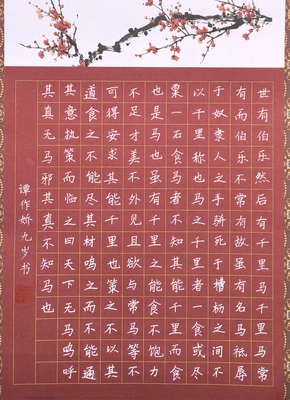 世有伯乐然后有千里马千里马常
有而伯乐不常有故虽有名马祗辱
于奴隶人之手骈死于槽枥之间不
以千里称也马之千里者一食或尽
粟一石食马者不知其能千里而食
也是马也虽有千里之能食不饱力
不足才美不外见且欲与常马等不
可得安求其能千里也策之不以其
道食之不能尽其材鸣之而不能通
其意执策而临之曰天下无马呜呼
其真无马邪其真不知马也
谭作娇九岁书